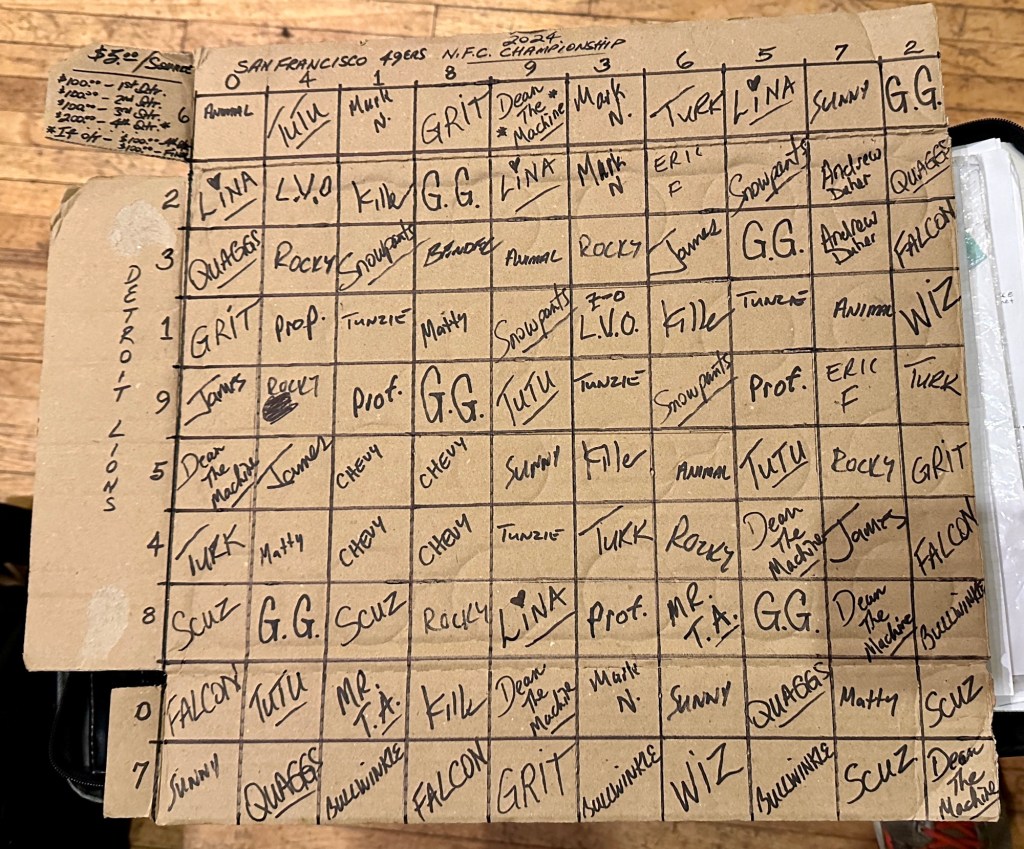 2024
SAN FRANCISCO 49ERS N.F.C. CHAMPIONSHIP
$5.00/SQUARE
$100.00 - 1st Qtr.
$100.00 - 2nd Qtr.
$100.00 - 3rd Qtr.
$200.00 - 4th Qtr. *
* If OT - $100.00
$100.00
0 4 1 8 9 3 6 5 7 2
6 ANIMAL TUTU Mark N. GRIT Dean The Machine Mark N. TURK LiNA SUNNY G.G.
2 LiNA L.V.O Kille G.G. LiNA Mark N ERIC F Snowpants Andrew Daher QUAGGS
3 QUAGGS ROCKY Snowpants BENDER ANIMAL ROCKY James G.G. Andrew Daher FALCON
1 GRIT Prof. TUNZIE Matty Snowpants L.V.O. Kille TUNZIE ANIMAL WIZ
9 James ROCKY Prof. G.G. TUTU TUNZIE Snowpants Prof. ERIC F TURK
5 Dean The Machine James CHEVY CHEVY SUNNY Kille ANIMAL TUTU ROCKY GRIT
4 TURK Matty CHEVY CHEVY TUNZIE TURK ROCKY Dean The Machine James FALCON
8 SCUZ G.G. SCUZ ROCKY LiNA Prof. MR. T.A. G.G. Dean The Machine BULLWINKLE
0 FALCON TUTU MR. T.A. Kille Dean The Machine Mark N. SUNNY QUAGGS Matty SCUZ
7 SUNNY QUAGGS BULLWINKLE FALCON GRIT BULLWINKLE WIZ BULLWINKLE SCUZ Dean The Machine
DETROIT LIONS